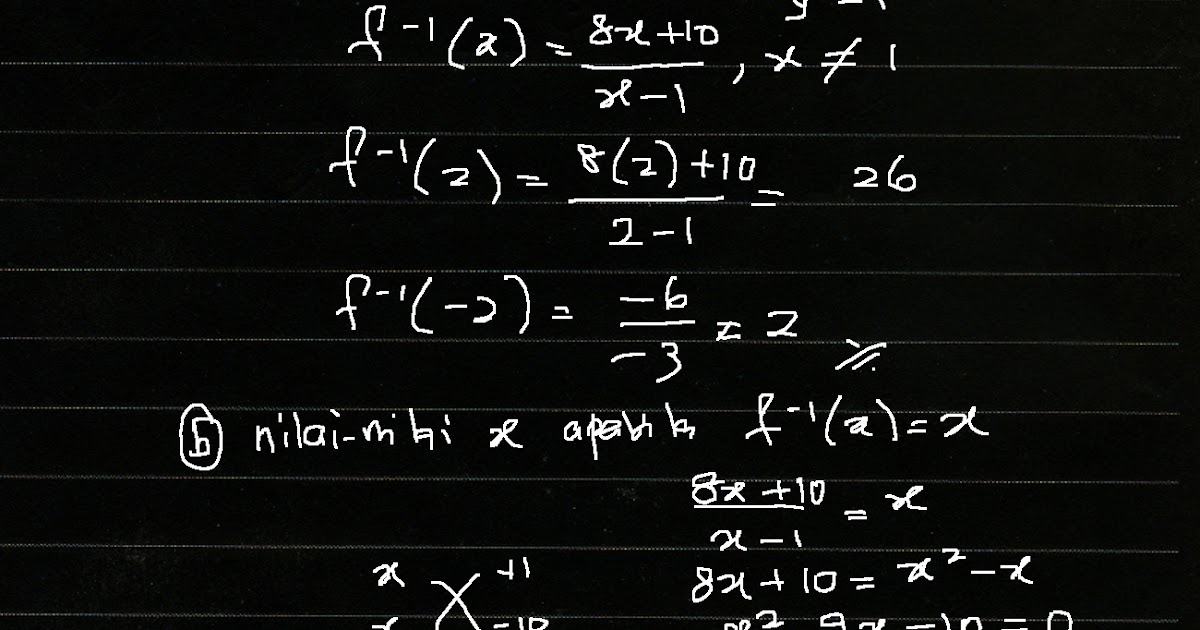 f⁻¹(x) = (8x+10)/(x-1) , x ≠ 1
f⁻¹(2) = (8(2)+10)/(2-1) = 26
f⁻¹(-2) = (-6)/(-3) = 2
(b) nilai-nilai x apabila f⁻¹(x) = x
(8x+10)/(x-1) = x
x +1 8x+10 = x² - x
x -10 x² 9x -10 = 0